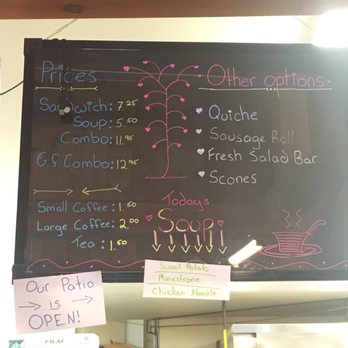 Prices
Sandwich: 7.25
Soup: 5.50
Combo: 11.95
G.f. Combo: 12.95
Small Coffee: 1.50
Large Coffee: 2.00
Tea: 1.50
Today's
Soup
Other options
Quiche
Sausage Roll
Fresh Salad Bar
Scones
Our Patio
is
OPEN!
Sweet Potato
Minestrone
Chicken Noodle
FILM